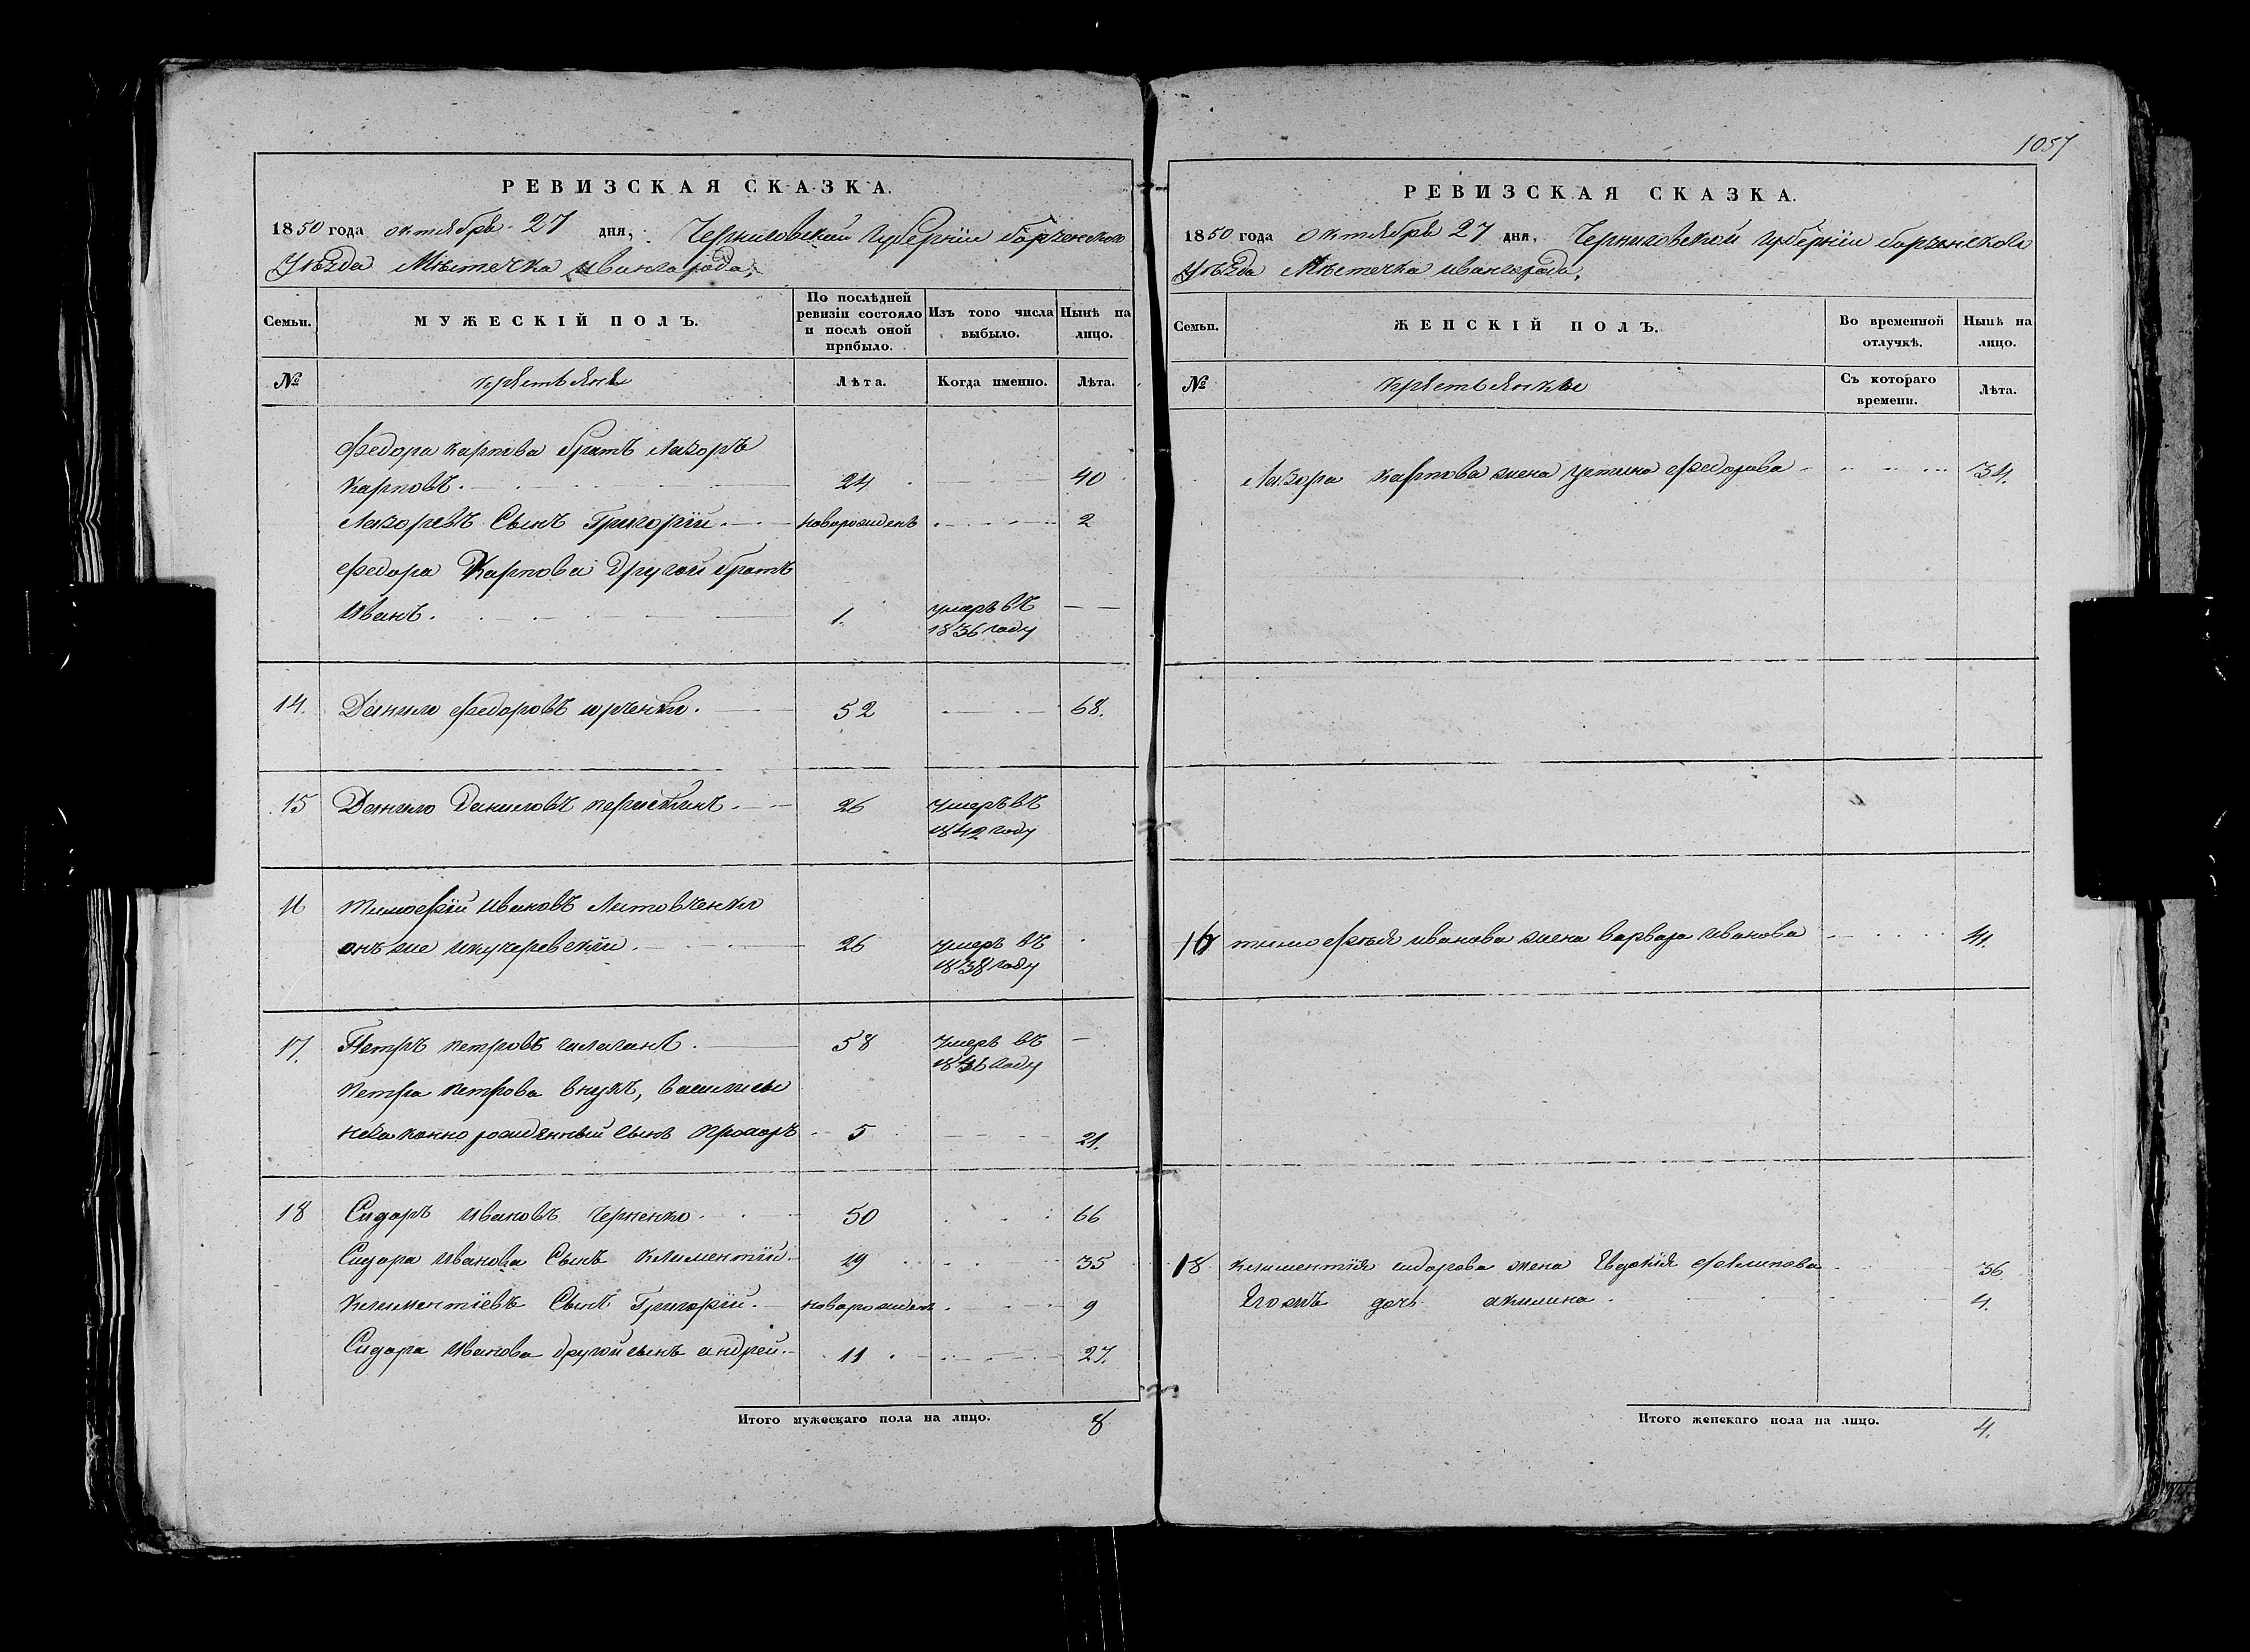 1057
РЕВИЗСКАЯ СКАЗКА.
1850 года октября 27 дня, Черниговской Губерніи борзенского
Уѣзда Мѣстечка ивангорода,
Семьи. МУЖЕСКІЙ ПОЛЪ. По послѣдней ревизіи состояло и послѣ оной прибыло. Изъ того числа выбыло. Нынѣ на лицо.
№ крѣстьяне Лѣта. Когда именно. Лѣта.
Федора карпова братъ Лазоръ
карповъ. 24 40
Лазоревъ Сынъ Григорій. новорожденъ 2
Федора Карпова Другой братъ
Иванъ. 1. умеръ въ 1836 году
14. Данило Федоровъ 52 68.
15 Данило Даниловъ 26 умеръ въ 1842 году
16 Тимофѣй Ивановъ Литовченко
онъ же 26 умеръ въ 1838 году
17. Петръ петровъ 58 умеръ въ году
петра петрова внукъ, василисы
незаконно рожденный сынъ прохоръ 5 21.
18 Сидоръ Ивановъ Черненко 50 66
Сидора Иванова Сынъ Климентій 19 35
Климентіевъ Сынъ Григорій. новорожденъ 9
Сидора Иванова другой сынъ андрей. 11 27.
Итого мужескаго пола на лицо. 8
РЕВИЗСКАЯ СКАЗКА.
1850 года октября 27 дня, Черниговской губерніи борзенского
Уѣзда Мѣстечка ивангорода,
Семьи. ЖЕНСКІЙ ПОЛЪ. Во временной отлучкѣ. Нынѣ на лицо.
№ крѣстьянки Съ котораго времени. Лѣта.
Лазора карпова жена устина Федорова 34.
16 тимофѣя иванова жена варвара иванова 41.
18 климентія сидорова жена Евдокія Филипова 36
Егожъ дочь акилина 4.
Итого женскаго пола на лицо. 4.